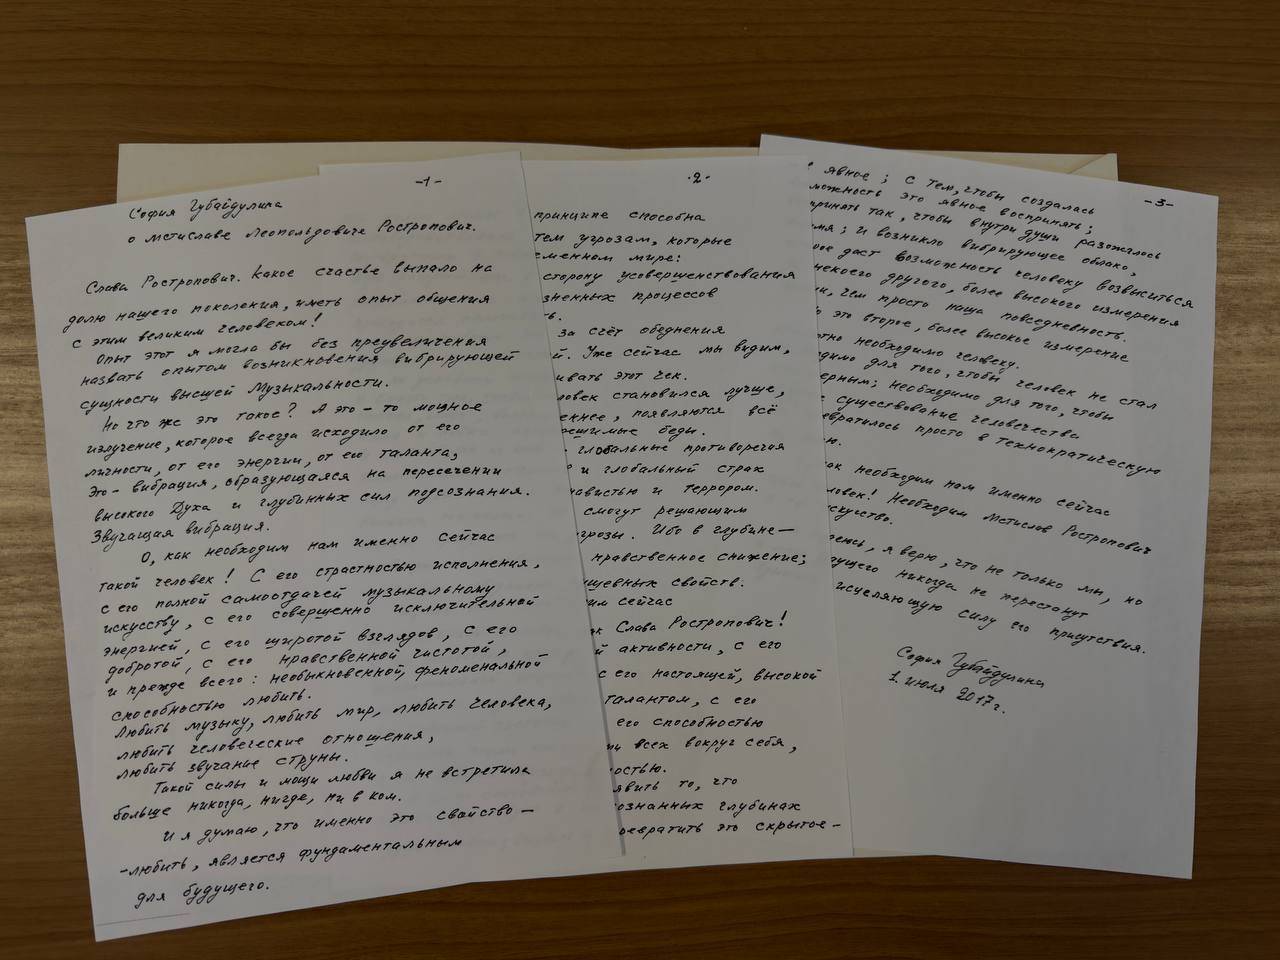 -1-
София Губайдулина
о Мстиславе Леопольдовиче Ростропович.
Слава Ростропович. Какое счастье выпало на
долю нашего поколения, иметь опыт общения
с этим великим человеком!
Опыт этот я могла бы без преувеличения
назвать опытом возникновения вибрирующей
сущности высшей Музыкальности.
Но что же это такое? А это – то мощное
излучение, которое всегда исходило от его
личности, от его энергии, от его таланта,
Это – вибрация, образующаяся на пересечении
высокого Духа и глубинных сил подсознания.
Звучащая вибрация.
О, как необходим нам именно сейчас
такой человек! С его страстностью исполнения,
с его полной самоотдачей музыкальному
искусству, с его совершенно исключительной
энергией, с его широтой взглядов, с его
добротой, с его нравственной чистотой,
и прежде всего: необыкновенной, феноменальной
способностью любить.
Любить музыку, любить мир, любить человека,
любить человеческие отношения,
любить звучание струны.
Такой силы и мощи любви я не встретила
больше никогда, нигде, ни в ком.
И я думаю, что именно это свойство –
-любить, является фундаментальным
для будущего.
·2·
принципе способна
тем угрозам, которые
еменном мире:
сторону усовершенствования
зненных процессов
ь.
за счёт обеднения
й. Уже сейчас мы видим,
ивать этот чек.
ловек становился лучше,
еннее, появляются всё
решимые беды.
глобальные противоречия
и глобальный страх
навистью и террором.
смогут решающим
грозы. Ибо в глубине –
нравственное снижение;
ушевных свойств.
им сейчас
к Слава Ростропович!
й активности, с его
с его настоящей, высокой
талантом, с его
его способностью
ти всех вокруг себя,
остью.
явить то, что
ознанных глубинах
ревратить это скрытое –
-3-
явное; с тем, чтобы создалась
можность это явное воспринять;
принять так, чтобы внутри души разожглось
мя; и возникло вибрирующее облако,
рое даст возможность человеку возвыситься
некоего другого, более высокого измерения
ни, чем просто наша повседневность.
о это второе, более высокое измерение
тно необходимо человеку.
димо для того, чтобы человек не стал
мерным; необходимо для того, чтобы
существование человечества
евратилось просто в технократическую
ю.
как необходим нам именно сейчас
ловек! Необходим Мстислав Ростропович
искусство.
еюсь, я верю, что не только мы, но
дущего никогда не перестанут
исцеляющую силу его присутствия.
София Губайдулина
1. июля 2017г.